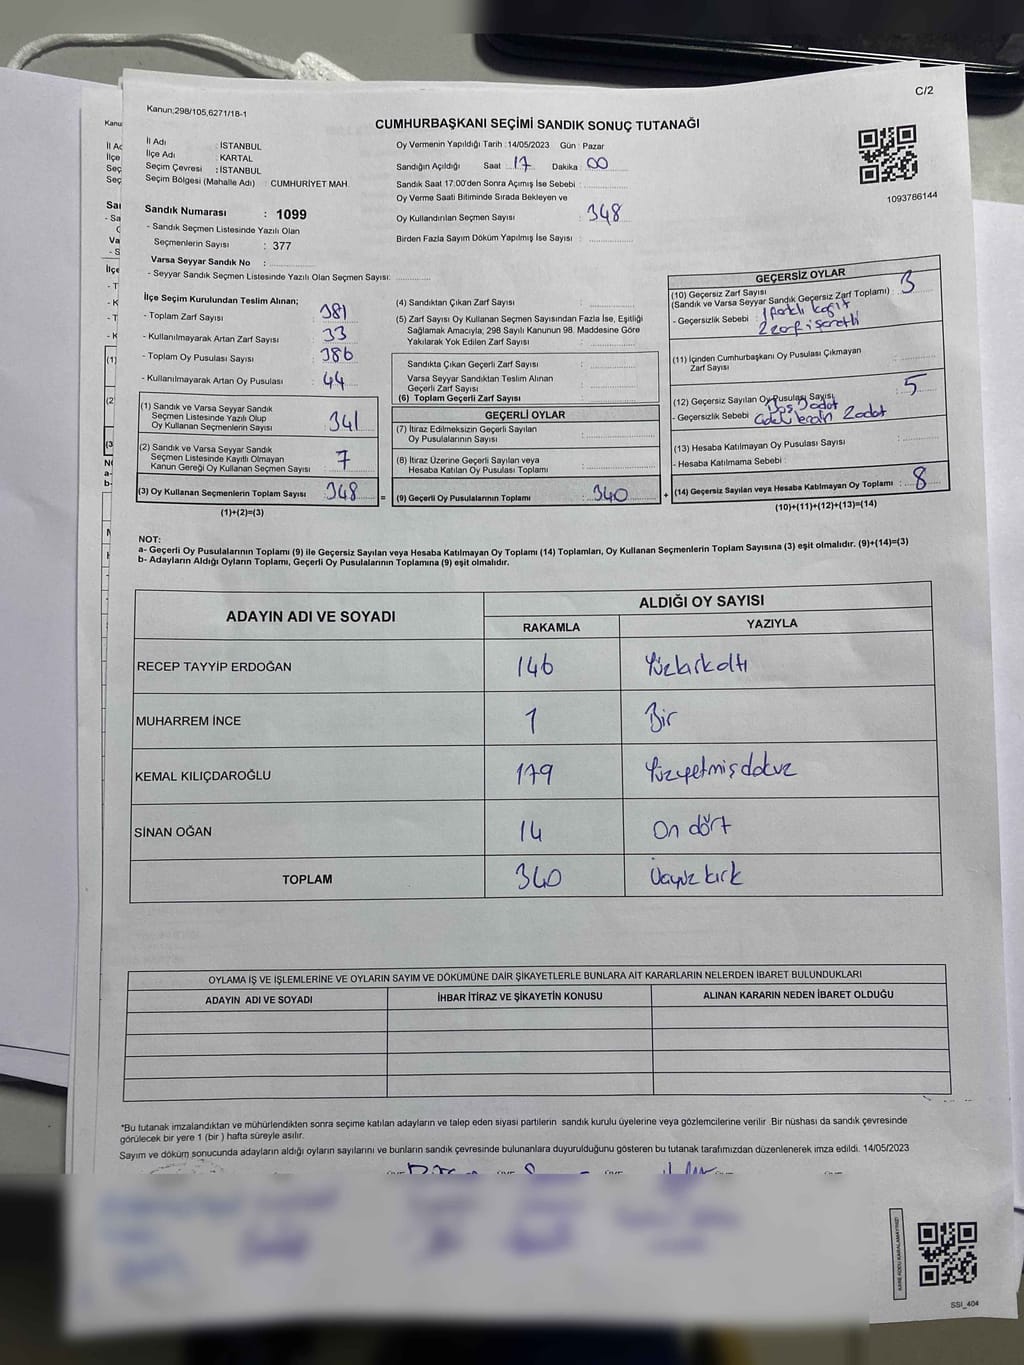 C/2
Kanun;298/105,6271/18-1
CUMHURBAŞKANI SEÇİMİ SANDIK SONUÇ TUTANAĞI
İl Adı : İSTANBUL
İlçe Adı : KARTAL
Seçim Çevresi : İSTANBUL
Seçim Bölgesi (Mahalle Adı) : CUMHURİYET MAH.
Oy Vermenin Yapıldığı Tarih : 14/05/2023 Gün : Pazar
Sandığın Açıldığı Saat 17 Dakika 00
Sandık Saat 17.00'den Sonra Açılmış İse Sebebi :
Oy Verme Saati Bitiminde Sırada Bekleyen ve
Oy Kullandırılan Seçmen Sayısı : 348
Birden Fazla Sayım Döküm Yapılmış İse Sayısı :
1093786144
Sandık Numarası : 1099
- Sandık Seçmen Listesinde Yazılı Olan
Seçmenlerin Sayısı : 377
Varsa Seyyar Sandık No :
- Seyyar Sandık Seçmen Listesinde Yazılı Olan Seçmen Sayısı:
İlçe Seçim Kurulundan Teslim Alınan;
- Toplam Zarf Sayısı : 381
- Kullanılmayarak Artan Zarf Sayısı : 33
- Toplam Oy Pusulası Sayısı : 386
- Kullanılmayarak Artan Oy Pusulası : 44
(1) Sandık ve Varsa Seyyar Sandık
Seçmen Listesinde Yazılı Olup
Oy Kullanan Seçmenlerin Sayısı : 341
(2) Sandık ve Varsa Seyyar Sandık
Seçmen Listesinde Kayıtlı Olmayan
Kanun Gereği Oy Kullanan Seçmen Sayısı : 7
(3) Oy Kullanan Seçmenlerin Toplam Sayısı : 348
(1)+(2)=(3)
=
(4) Sandıktan Çıkan Zarf Sayısı :
(5) Zarf Sayısı Oy Kullanan Seçmen Sayısından Fazla İse, Eşitliği
Sağlamak Amacıyla; 298 Sayılı Kanunun 98. Maddesine Göre
Yakılarak Yok Edilen Zarf Sayısı :
Sandıkta Çıkan Geçerli Zarf Sayısı :
Varsa Seyyar Sandıktan Teslim Alınan
Geçerli Zarf Sayısı :
(6) Toplam Geçerli Zarf Sayısı :
GEÇERLİ OYLAR
(7) İtiraz Edilmeksizin Geçerli Sayılan
Oy Pusulalarının Sayısı :
(8) İtiraz Üzerine Geçerli Sayılan veya
Hesaba Katılan Oy Pusulası Toplamı :
(9) Geçerli Oy Pusulalarının Toplamı : 340
+
GEÇERSİZ OYLAR
(10) Geçersiz Zarf Sayısı : 3
(Sandık ve Varsa Seyyar Sandık Geçersiz Zarf Toplamı)
- Geçersizlik Sebebi : 1 farklı kağıt
2 zarf işaretli
(11) İçinden Cumhurbaşkanı Oy Pusulası Çıkmayan
Zarf Sayısı :
(12) Geçersiz Sayılan Oy Pusulası Sayısı : 5
- Geçersizlik Sebebi : Boş 3 adet
2 adet
(13) Hesaba Katılmayan Oy Pusulası Sayısı :
- Hesaba Katılmama Sebebi :
(14) Geçersiz Sayılan veya Hesaba Katılmayan Oy Toplamı : 8
(10)+(11)+(12)+(13)=(14)
NOT:
a- Geçerli Oy Pusulalarının Toplamı (9) ile Geçersiz Sayılan veya Hesaba Katılmayan Oy Toplamı (14) Toplamları, Oy Kullanan Seçmenlerin Toplam Sayısına (3) eşit olmalıdır. (9)+(14)=(3)
b- Adayların Aldığı Oyların Toplamı, Geçerli Oy Pusulalarının Toplamına (9) eşit olmalıdır.
ADAYIN ADI VE SOYADI ALDIĞI OY SAYISI
RAKAMLA YAZIYLA
RECEP TAYYİP ERDOĞAN 146 Yüzkırkaltı
MUHARREM İNCE 1 Bir
KEMAL KILIÇDAROĞLU 179 Yüzyetmişdokuz
SİNAN OĞAN 14 On dört
TOPLAM 340 Üçyüz kırk
OYLAMA İŞ VE İŞLEMLERİNE VE OYLARIN SAYIM VE DÖKÜMÜNE DAİR ŞİKAYETLERLE BUNLARA AİT KARARLARIN NELERDEN İBARET BULUNDUKLARI
ADAYIN ADI VE SOYADI İHBAR İTİRAZ VE ŞİKAYETİN KONUSU ALINAN KARARIN NEDEN İBARET OLDUĞU
*Bu tutanak imzalandıktan ve mühürlendikten sonra seçime katılan adayların ve talep eden siyasi partilerin sandık kurulu üyelerine veya gözlemcilerine verilir. Bir nüshası da sandık çevresinde
görülecek bir yere 1 (bir ) hafta süreyle asılır.
Sayım ve döküm sonucunda adayların aldığı oyların sayılarını ve bunların sandık çevresinde bulunanlara duyurulduğunu gösteren bu tutanak tarafımızdan düzenlenerek imza edildi. 14/05/2023
KARE KODU KARALAMAYINIZ!
SSI_404